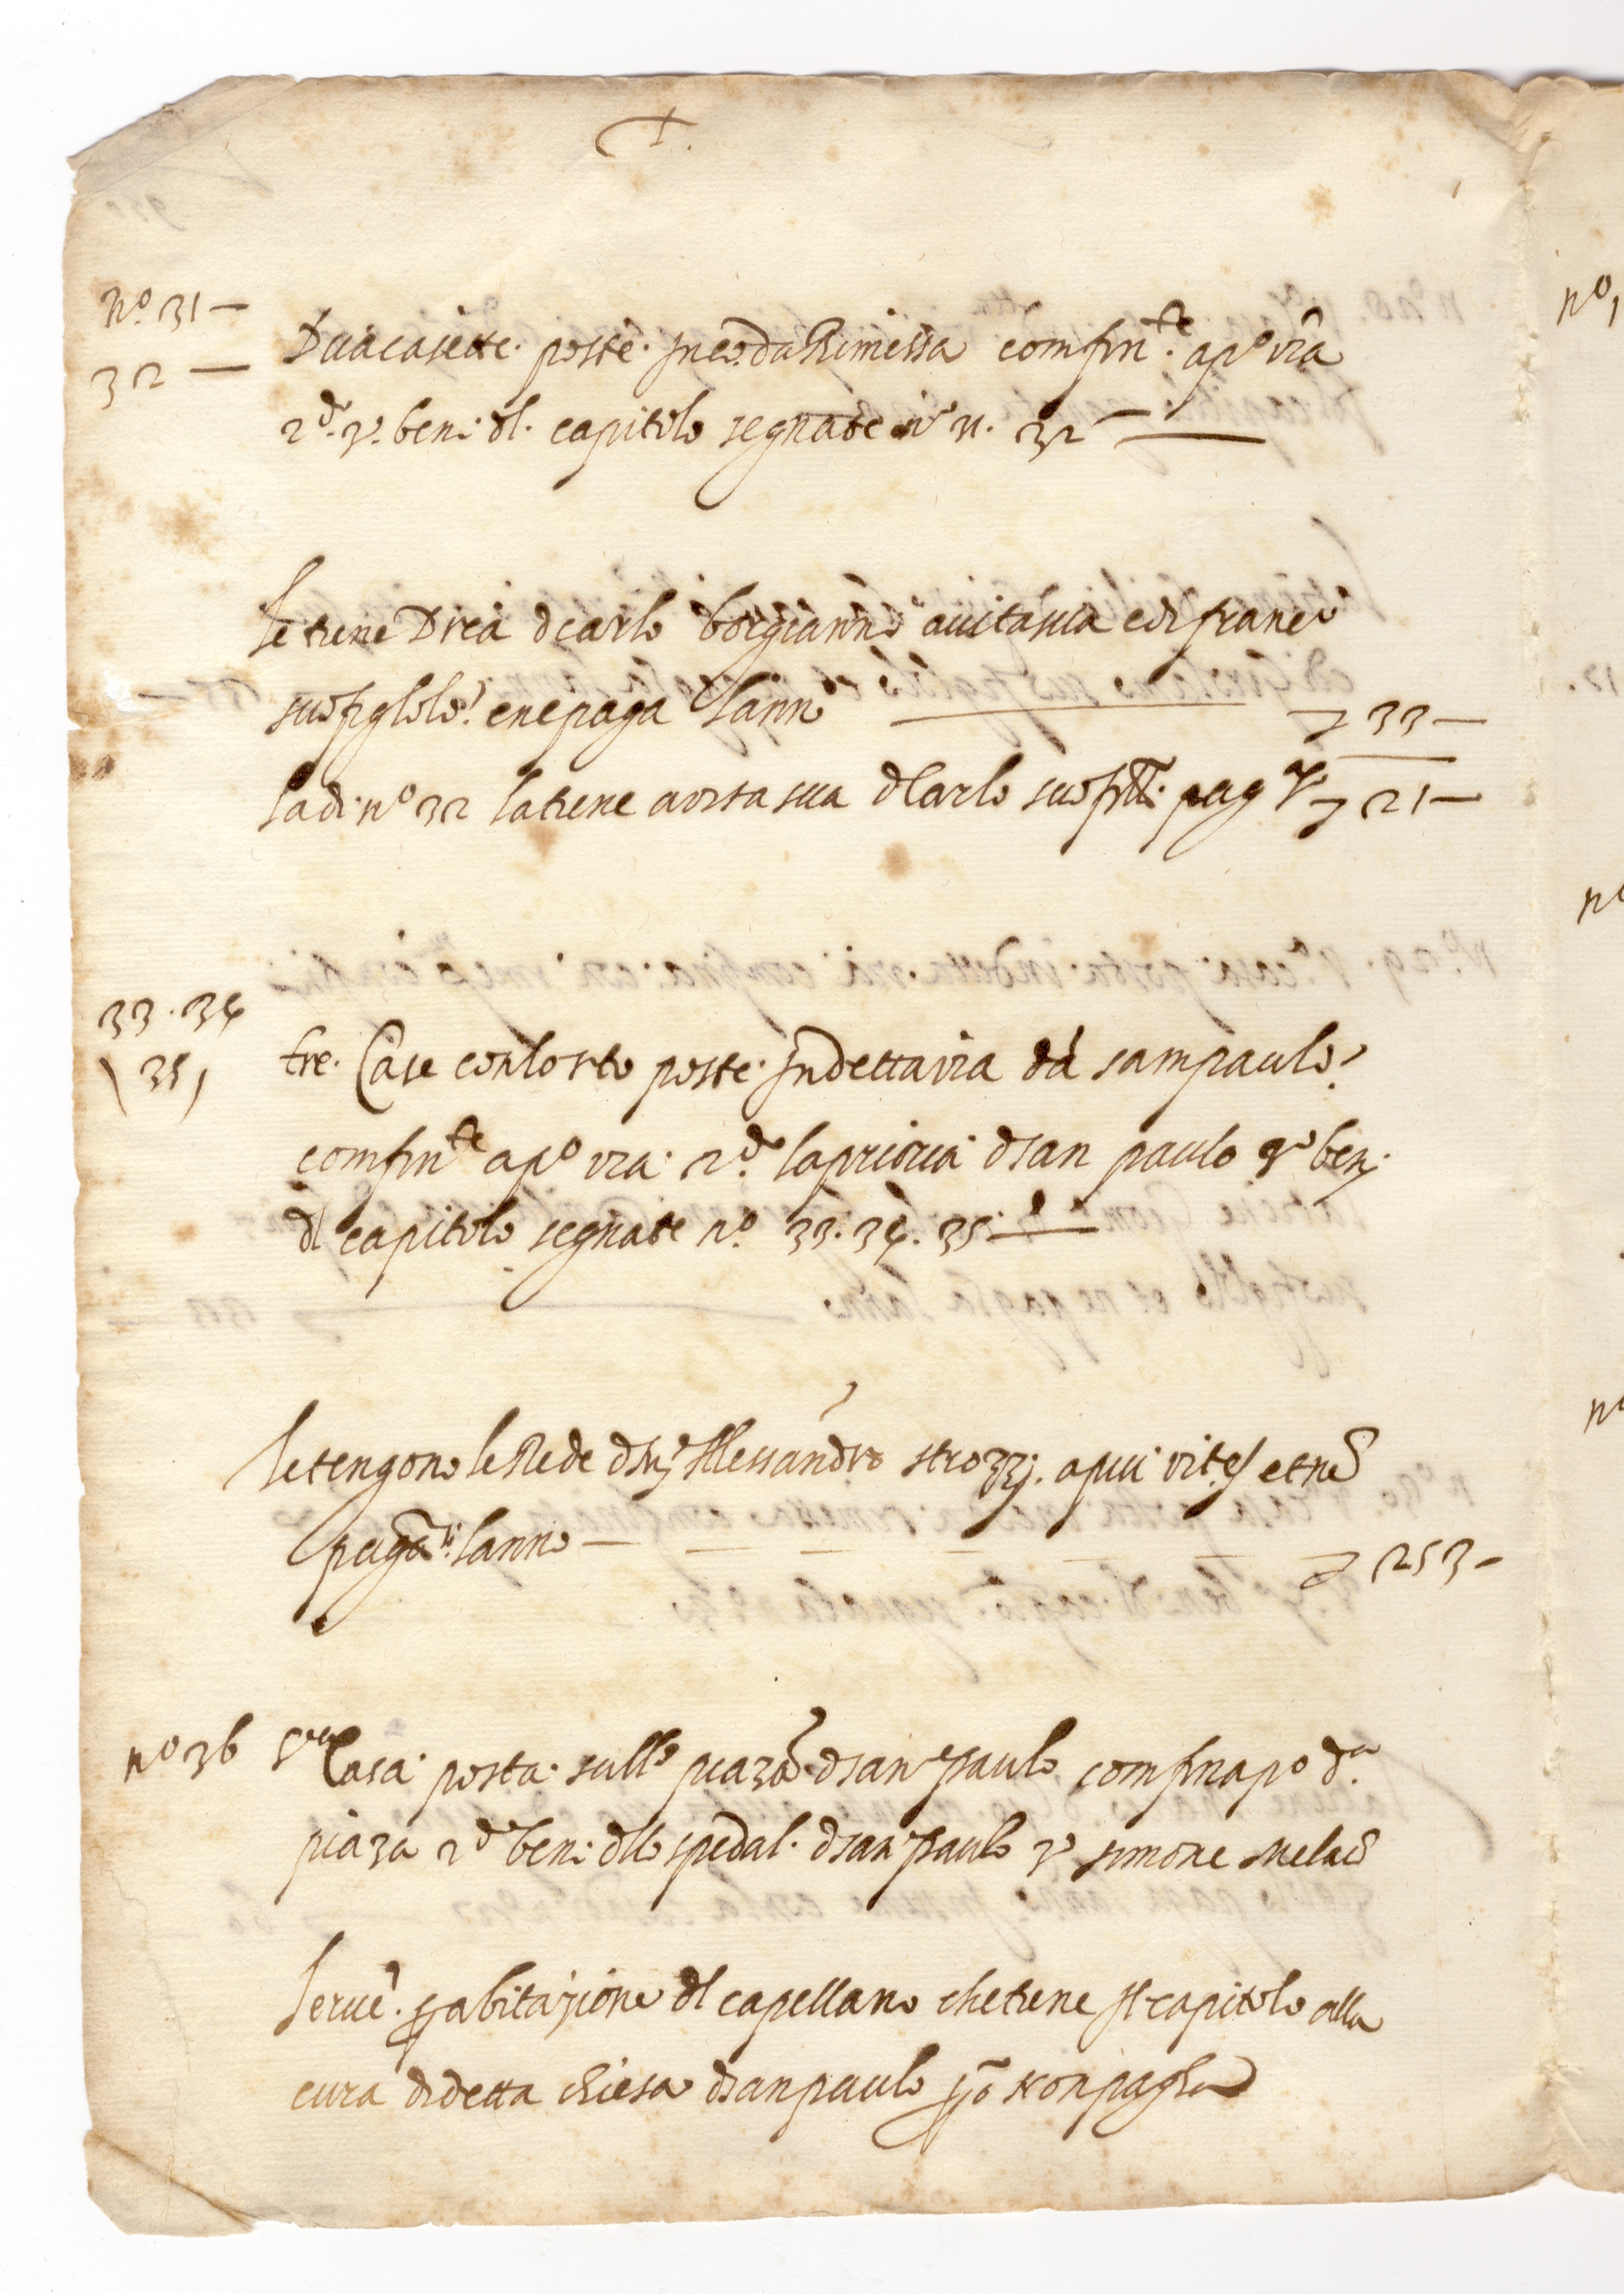 †.
no. 31 —
32 —
Dua casette. poste. in co. da Rimessa comfin.te apo via
2do. 3o. beni. dl. capitolo segnate no 31. 32 —
le tiene Drea di carlo borgianni a vita sua e di franco
suo figlolo. e ne paga lanno — 33 —
La di. no 32 la tiene a vita sua di Carlo suo pag 21 —
33. 34
(35)
tre. Case con lorto poste. in detta via da sampaulo.
comfin.te apo via. 2do la prioria di san paulo 3o beni.
dl capitolo segnate no. 33. 34. 35. —
le tengono le Rede di Alessandro strozzi. a piu vite et ne
pagano. lanno — 253 —
no 36 Una Casa. posta. sulla piaza di san paulo comfina po da.
piaza 2do beni. dllo spedal. di san paulo 3o simone
Serve. per abitazione dl capellano che tiene il capitolo alla
cura di detta chiesa di san paulo pero non paga